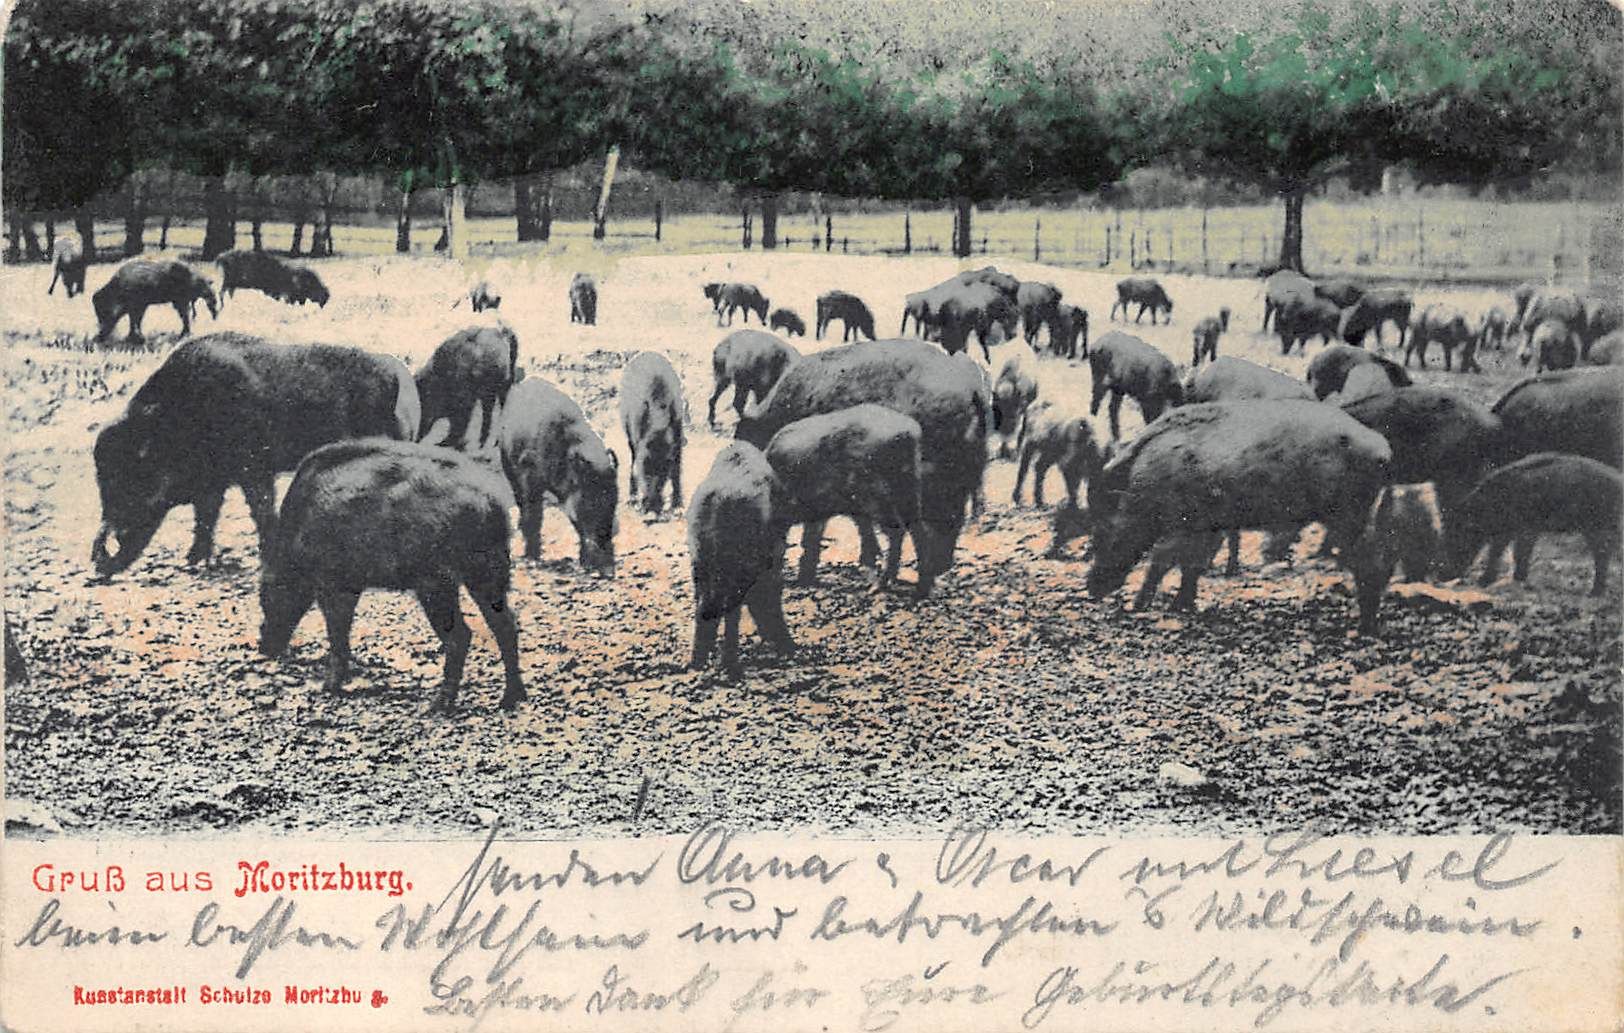 Gruß aus Moritzburg.
senden Anna & Oscar mit Liesel
beim besten Wohlsein und betrachten d Wildschwein.
Besten Dank für Eure Geburtstagskarte.
Kunstanstalt Schulze Moritzbu g.